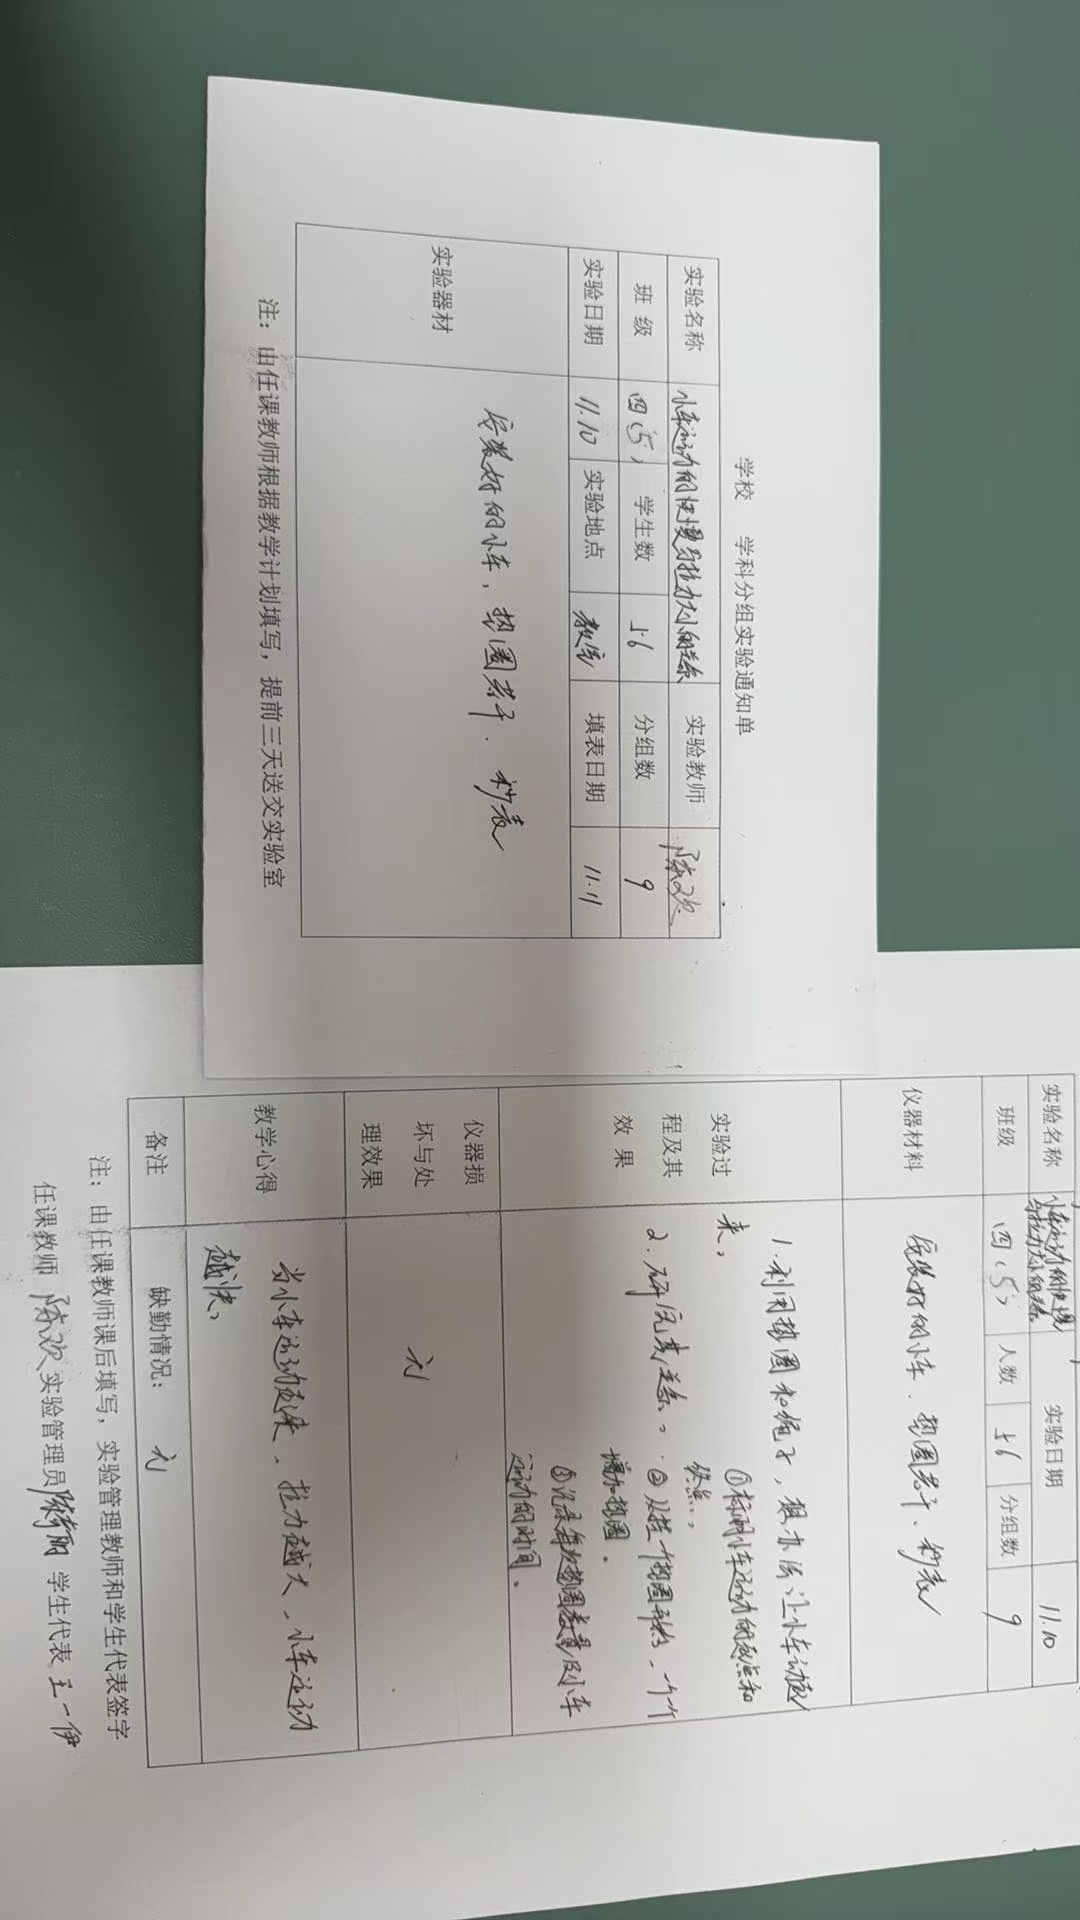 学校 学科分组实验通知单
实验名称 小车运动的快慢与拉力大小的关系 实验教师 陈欢
班 级 四（5） 学生数 56 分组数 9
实验日期 11.10 实验地点 教室 填表日期 11.11
实验器材 安装好的小车，垫圈若干．秒表
注：由任课教师根据教学计划填写，提前三天送交实验室
实验名称 小车运动的快慢 实验日期 11.10
与拉力大小的关系
班级 四（5） 人数 56 分组数 9
仪器材料 安装好的小车．垫圈若干．秒表
实验过
程及其
效 果
1.利用垫圈和绳子，想办法让小车动起
来，
2.研究其关系，
①标明小车运动的起点和
终点，
②从挂一个垫圈开始，一个个
增加垫圈．
③记录每次垫圈数量及小车
运动的时间．
仪器损
坏与处
理效果
无
教学心得
当小车运动起来，拉力越大，小车运动
越快，
备注 缺勤情况： 无
注：由任课教师课后填写，实验管理教师和学生代表签字
任课教师 陈欢 实验管理员 学生代表 王一伊